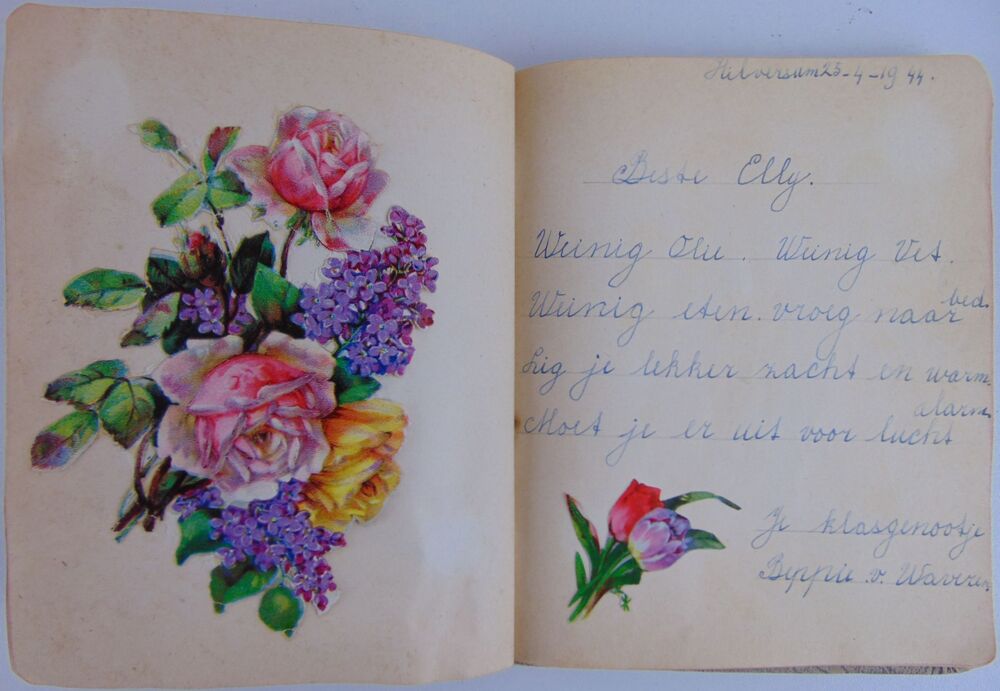 Hilversum 25-4-1944.
Beste Elly.
Weinig Olie. Weinig Vet.
Weinig eten. vroeg naar bed.
Lig je lekker zacht en warm
Moet je er uit voor lucht alarm
Je klasgenootje
Beppie v. Waveren